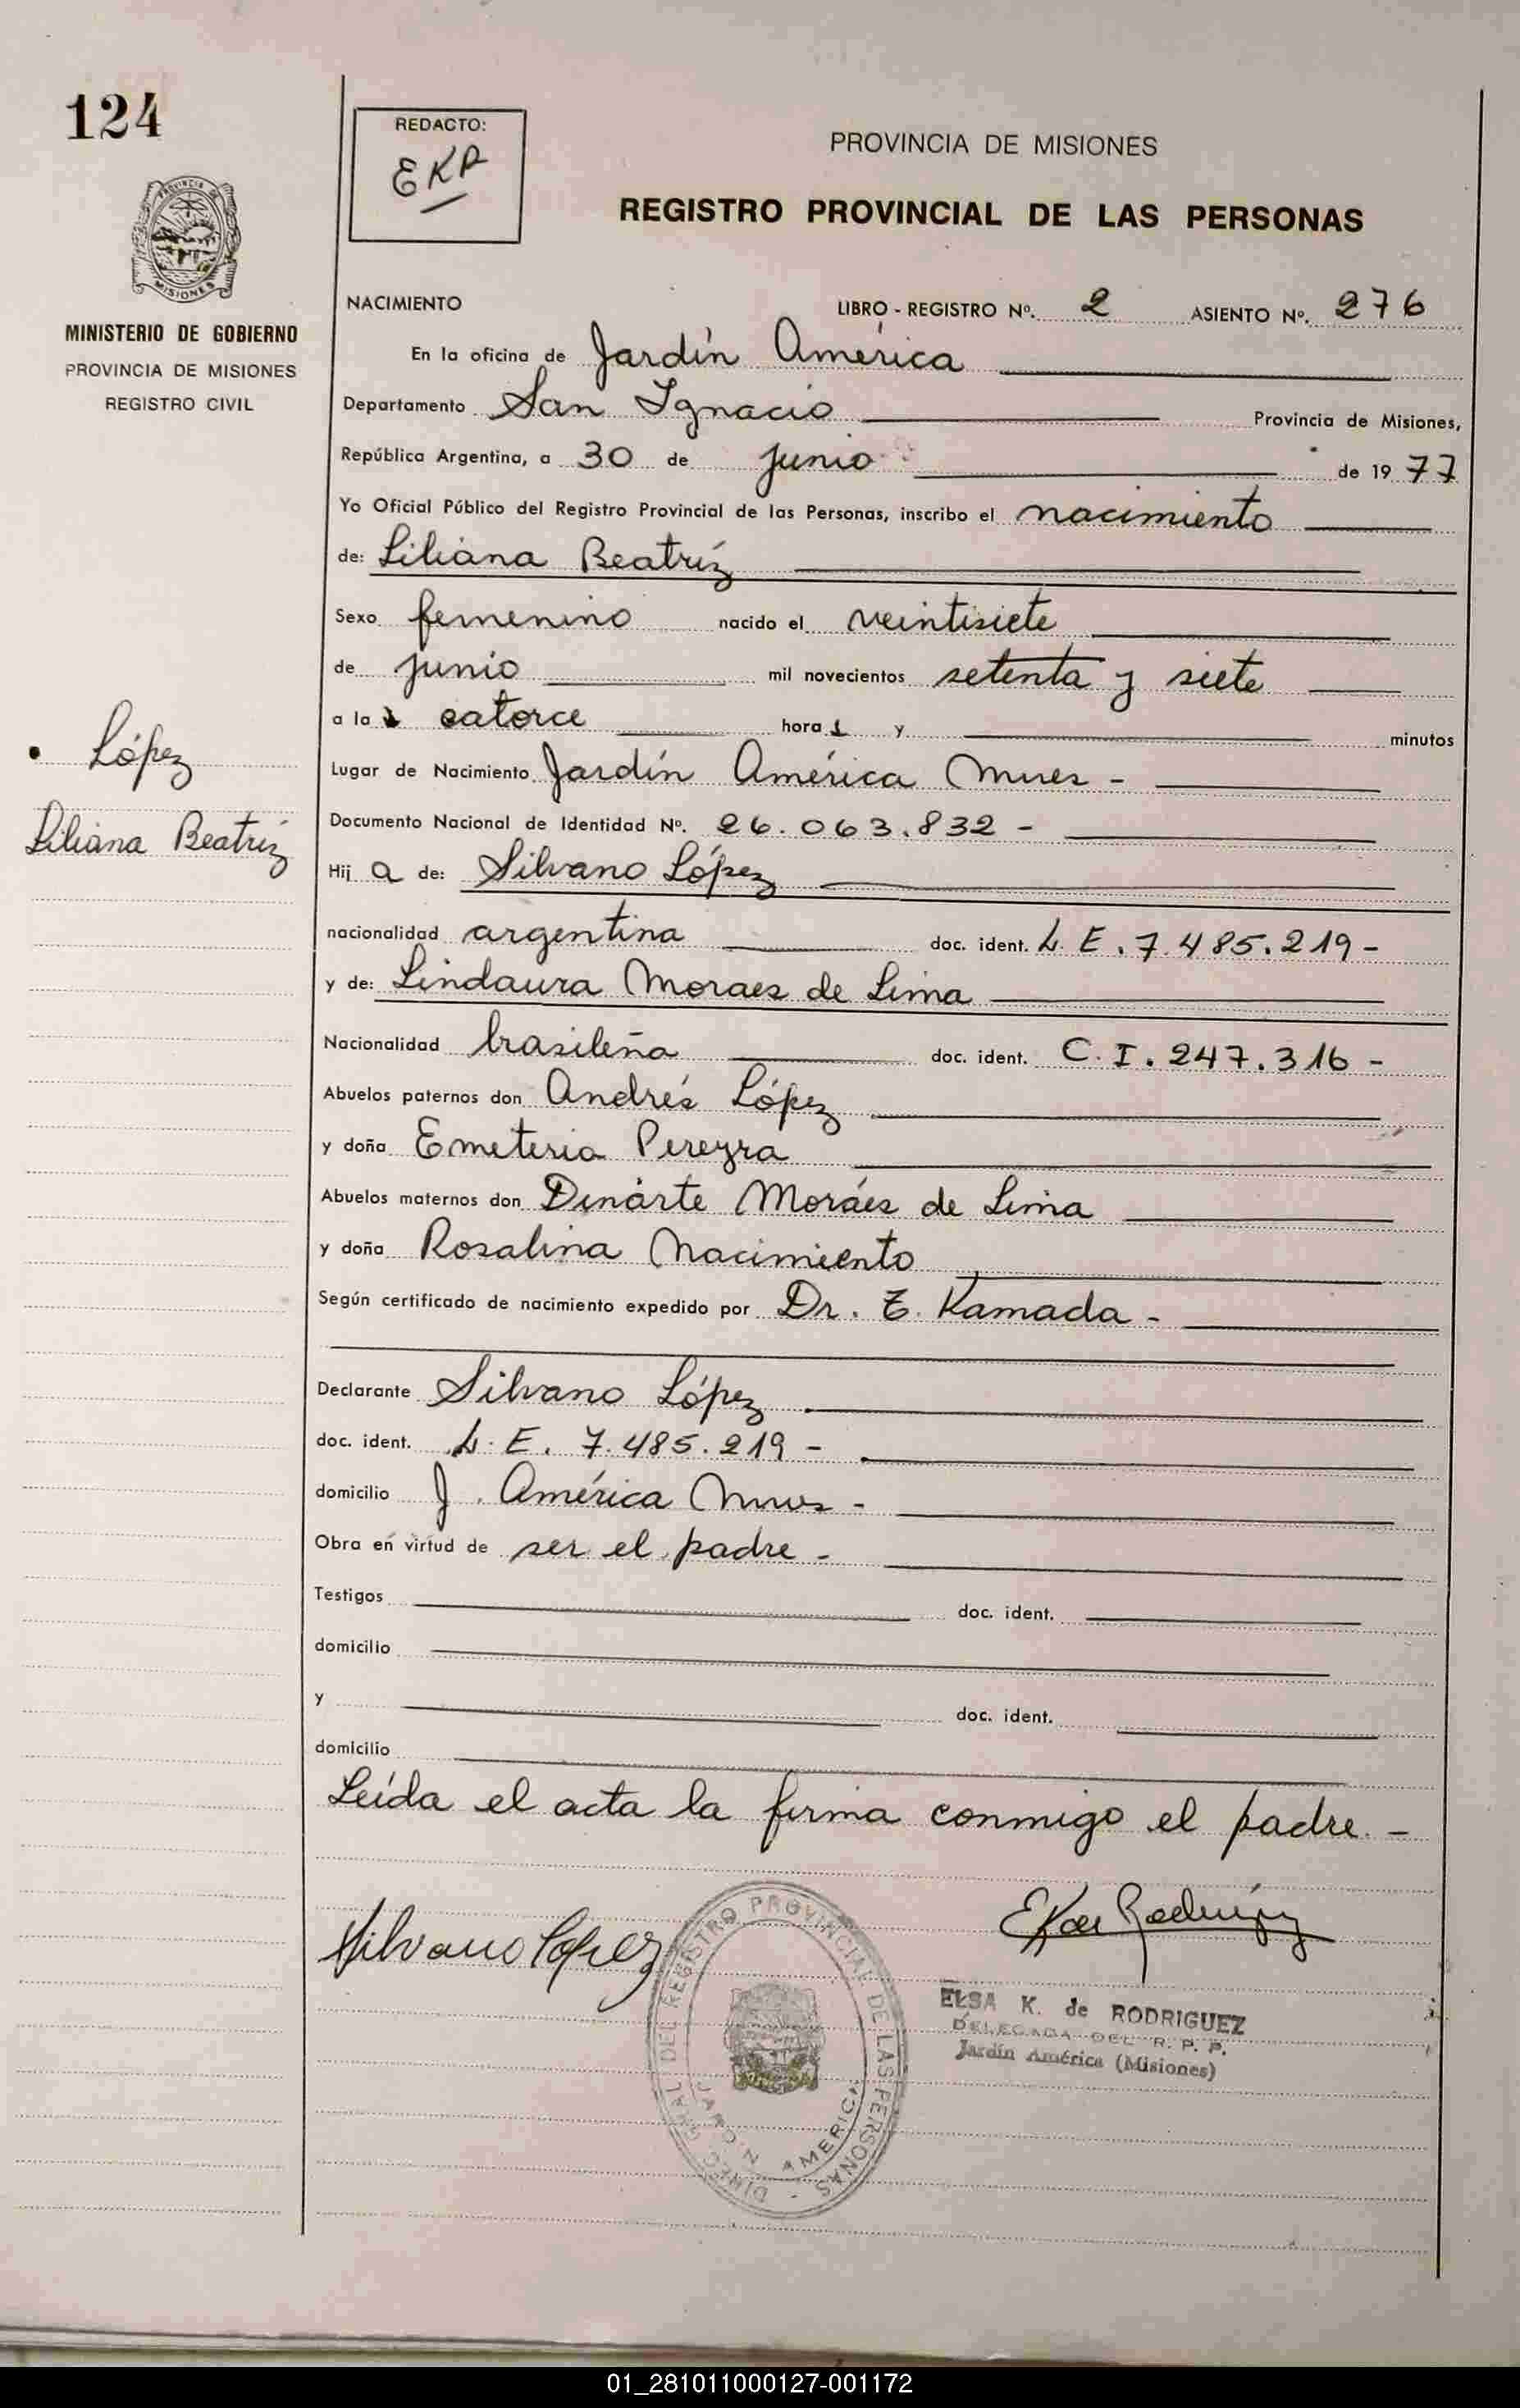 124
REDACTO:
EKR
PROVINCIA DE MISIONES
REGISTRO PROVINCIAL DE LAS PERSONAS
PROVINCIA DE
MISIONES
MINISTERIO DE GOBIERNO
PROVINCIA DE MISIONES
REGISTRO CIVIL
NACIMIENTO LIBRO - REGISTRO Nº. 2 ASIENTO Nº. 276
En la oficina de Jardín América
Departamento San Ignacio Provincia de Misiones,
República Argentina, a 30 de junio de 19 77
Yo Oficial Público del Registro Provincial de las Personas, inscribo el nacimiento
de: Liliana Beatríz
Sexo femenino nacido el veintisiete
de junio mil novecientos setenta y siete
a la s catorce hora s y minutos
López
Liliana Beatríz
Lugar de Nacimiento Jardín América Mnes -
Documento Nacional de Identidad Nº. 26.063.832 -
Hij a de: Silvano López
nacionalidad argentina doc. ident. L. E. 7.485.219 -
y de: Lindaura Moraes de Lima
Nacionalidad brasileña doc. ident. C. I. 247.316 -
Abuelos paternos don Andrés López
y doña Emeteria Pereyra
Abuelos maternos don Dinarte Moráes de Lima
y doña Rosalina Nacimiento
Según certificado de nacimiento expedido por Dr. Z. Kamada -
Declarante Silvano López
doc. ident. L. E. 7.485.219 -
domicilio J. América Mnes -
Obra en virtud de ser el padre -
Testigos doc. ident.
domicilio
y doc. ident.
domicilio
Leída el acta la firma conmigo el padre. -
Silvano López
EK de Rodríguez
DIREC. GRAL. DEL REGISTRO PROVINCIAL DE LAS PERSONAS -
JARDIN AMERICA
ELSA K. de RODRIGUEZ
DELEGADA DEL R. P. P.
Jardín América (Misiones)
01_281011000127-001172